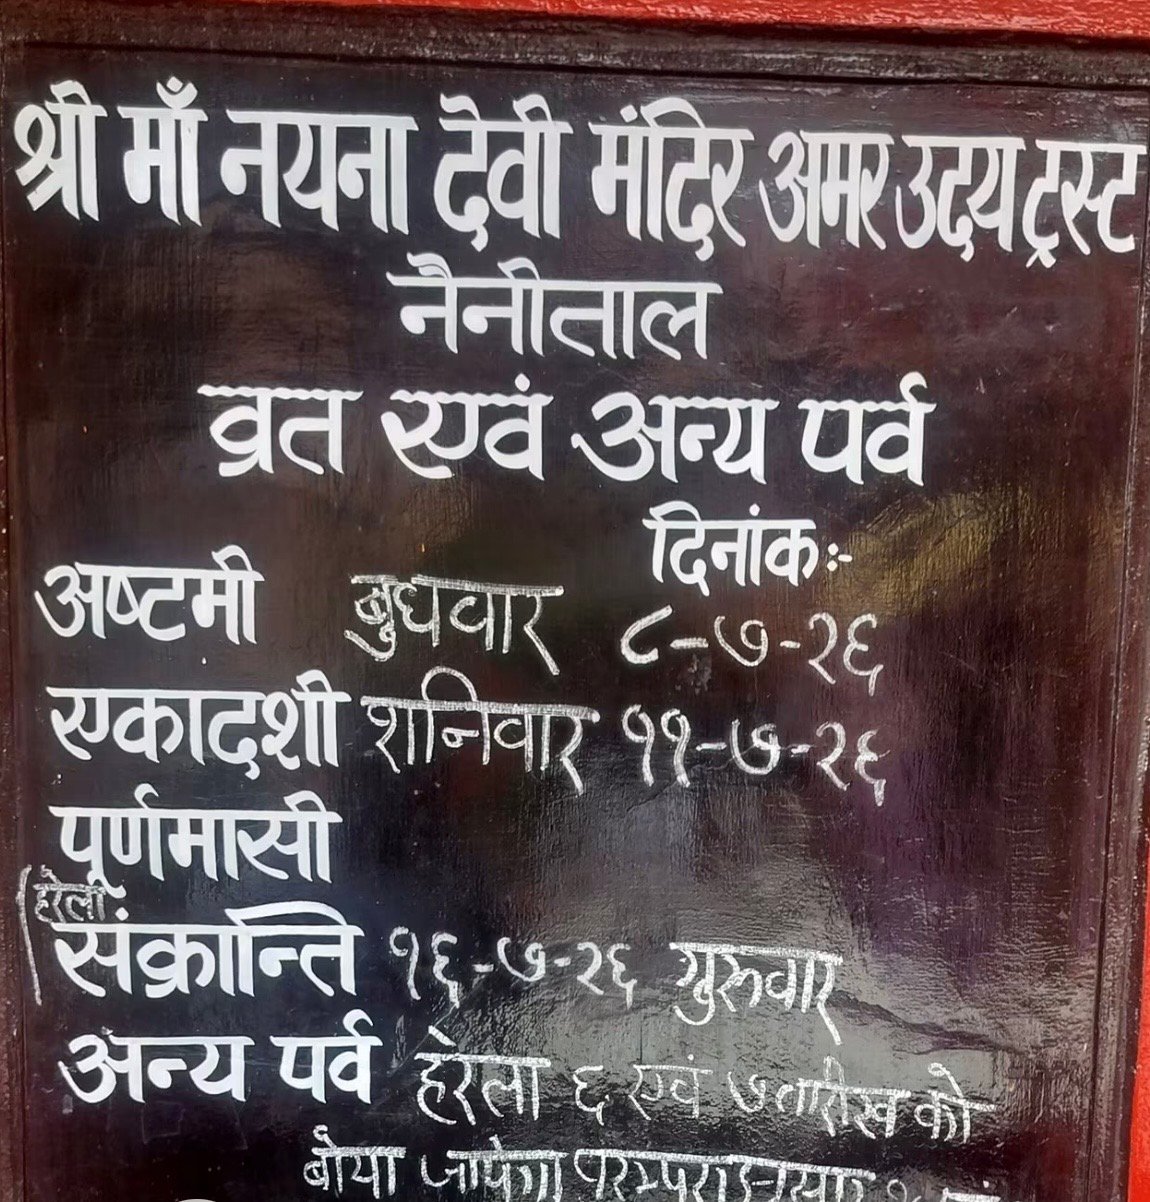 श्री माँ नयना देवी मंदिर अमर उदय ट्रस्ट
नैनीताल
व्रत एवं अन्य पर्व
दिनांक:-
अष्टमी बुधवार ८-७-२६
एकादशी शनिवार ११-७-२६
पूर्णमासी
हरेला
संक्रान्ति १६-७-२६ गुरुवार
अन्य पर्व हरेला ६ एवं ७ तारीख को
बोया जायेगा